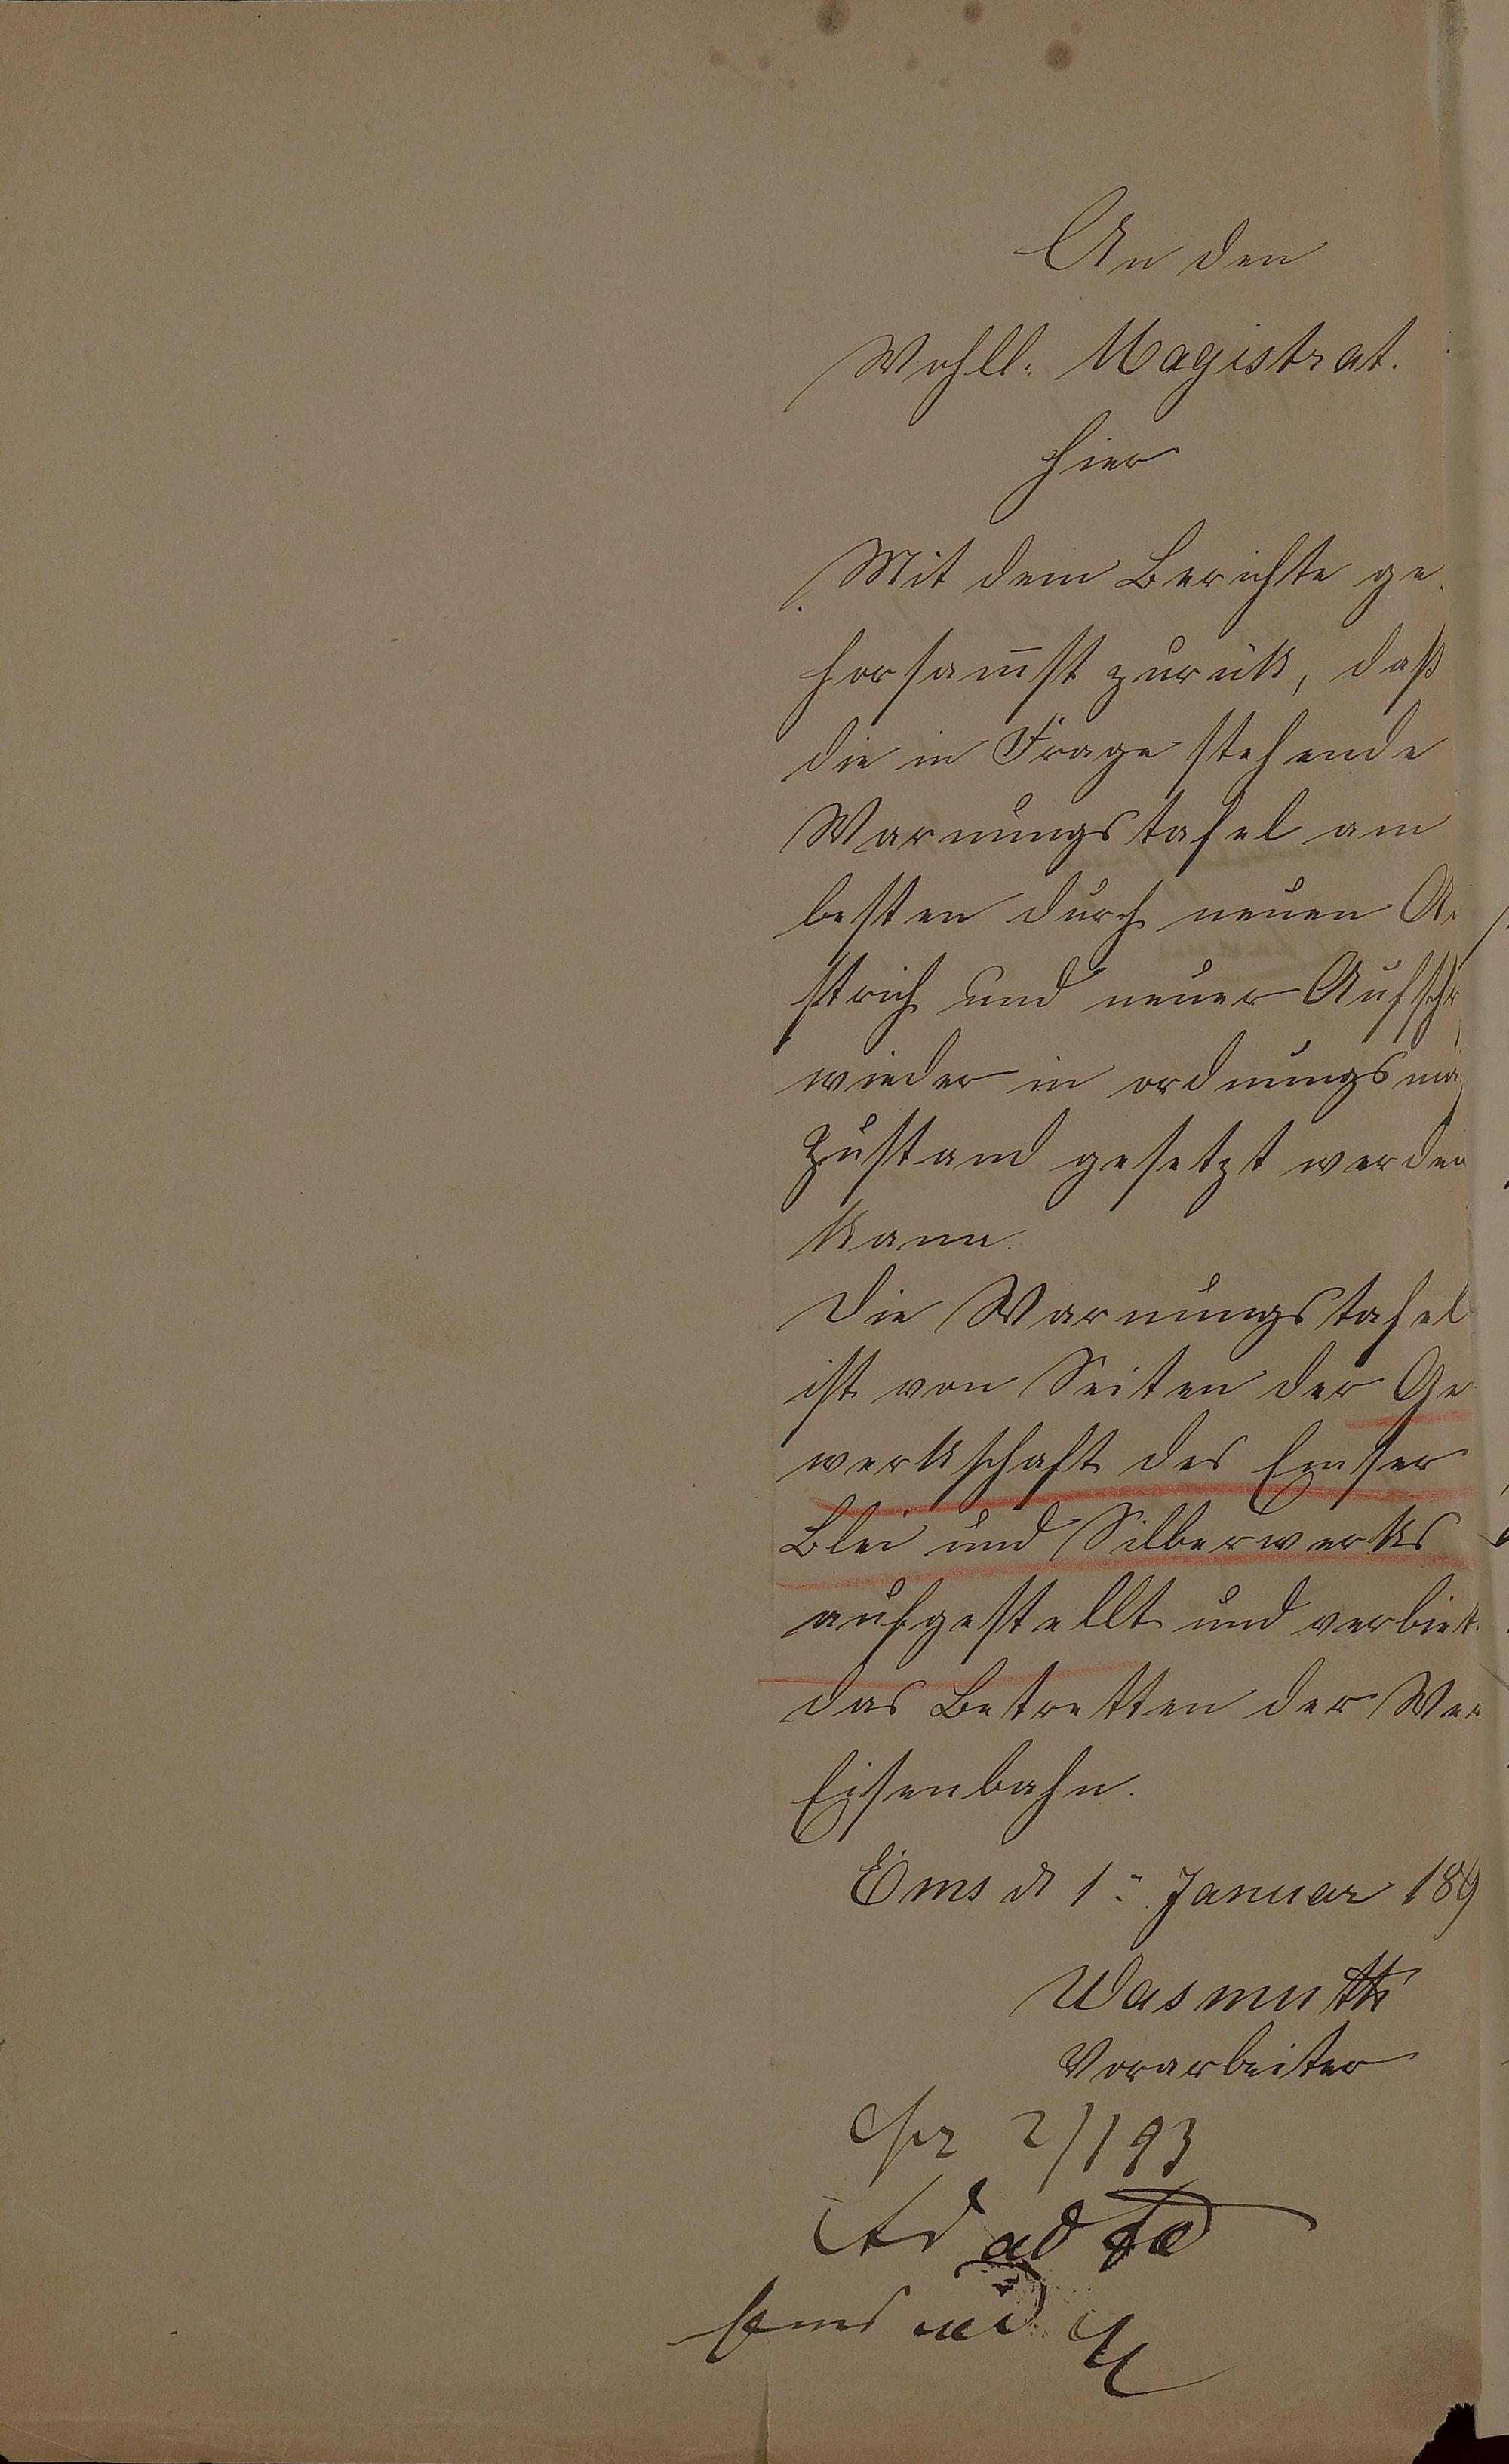 An den
Wohll. Magistrat.
hier
Mit dem Berichte ge
horsam̅st zurück, daß
die in Frage stehende
Warnungstafel am
besten durch neuen A
strich und neuer Aufschr
wieder in ordnungsmä
Zustand gesetzt werden
kann.
Die Warnungstafel
ist von Seiten der Ge
werkschaft des Emser
Blei und Silberwerks
aufgestellt und verbiet
das Betretten der Wer
Eisenbahn.
Ems d 1. Januar 189
Wasmuth
Vorarbeiter
2/1 93
ad
Ems